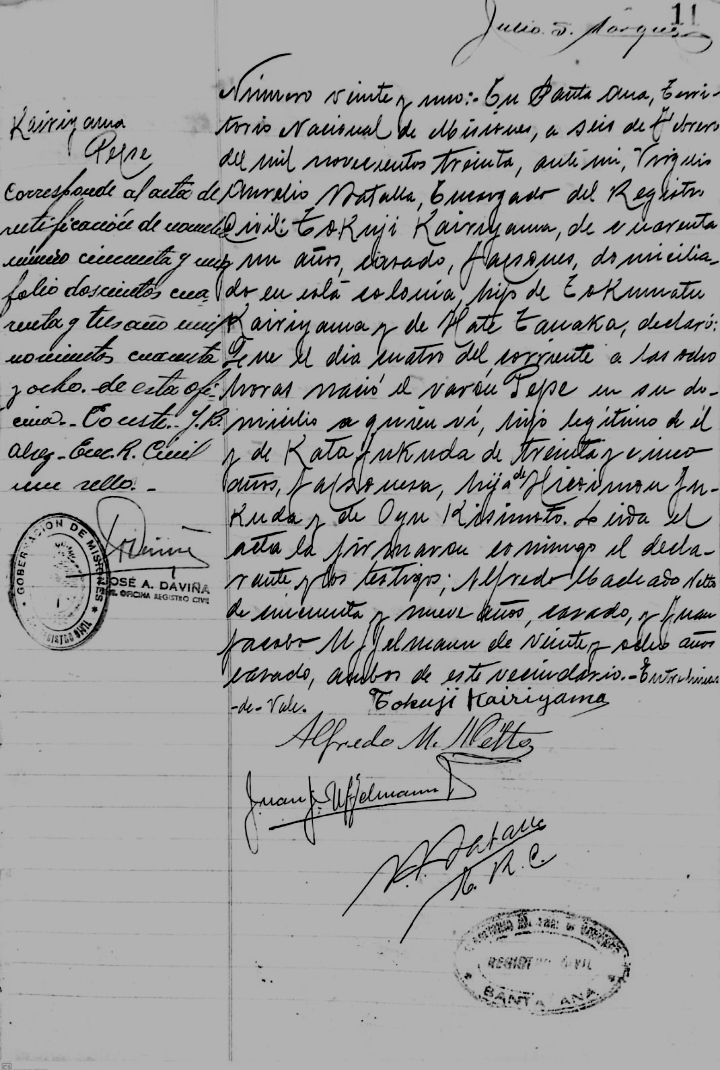 11
Julio D. Marque
Kairiyama
Pepe
Corresponde al acta de
rectificación de nombre
número cincuenta y uno
folio doscientos cua
renta y tres año mil
novecientos cuarenta
y ocho. de esta ofi-
cina.- Conste. J.R.
Enc. R. Civil
un sello.-
GOBERNACION DE MISIONES
REGISTRO CIVIL
JOSÉ A. DAVIÑA
OFICINA REGISTRO CIVIL
Número veinte y uno:- En Santa Ana, Terri-
torio Nacional de Misiones, a seis de Febrero
del mil novecientos treinta, ante mi, Virgilio
Aurelio Batalla, Encargado del Registro
Civil: Tokuji Kairiyama, de cuarenta
y un años, casado, Japones, domicilia-
do en está colonia, hijo de Tokumatu
Kairiyama y de Hate Tanaka, declaró:
Que el dia cuatro del corriente a las ocho
horas nació el varón Pepe en su do-
micilio a quien ví, hijo legítimo de él
y de Kata Jukuda de treinta y cinco
años, Japonesa, hija de Hicoimon Ju-
kuda y de Oyu Kisimoto. Leida el
acta la firmaron conmigo el decla-
rante y los testigos; Alfredo Machado Netto
de cincuenta y nueve años, casado, y Juan
Jacobo Uffelmann de veinte y ocho años
casado, ambos de este vecindario.- Entrelineas
-de- Vale.
Tokuji Kairiyama
Alfredo M. Netto
Juan J. Uffelmann
V. A. Batalla
E. R. C.
REGISTRO CIVIL
SANTA ANA